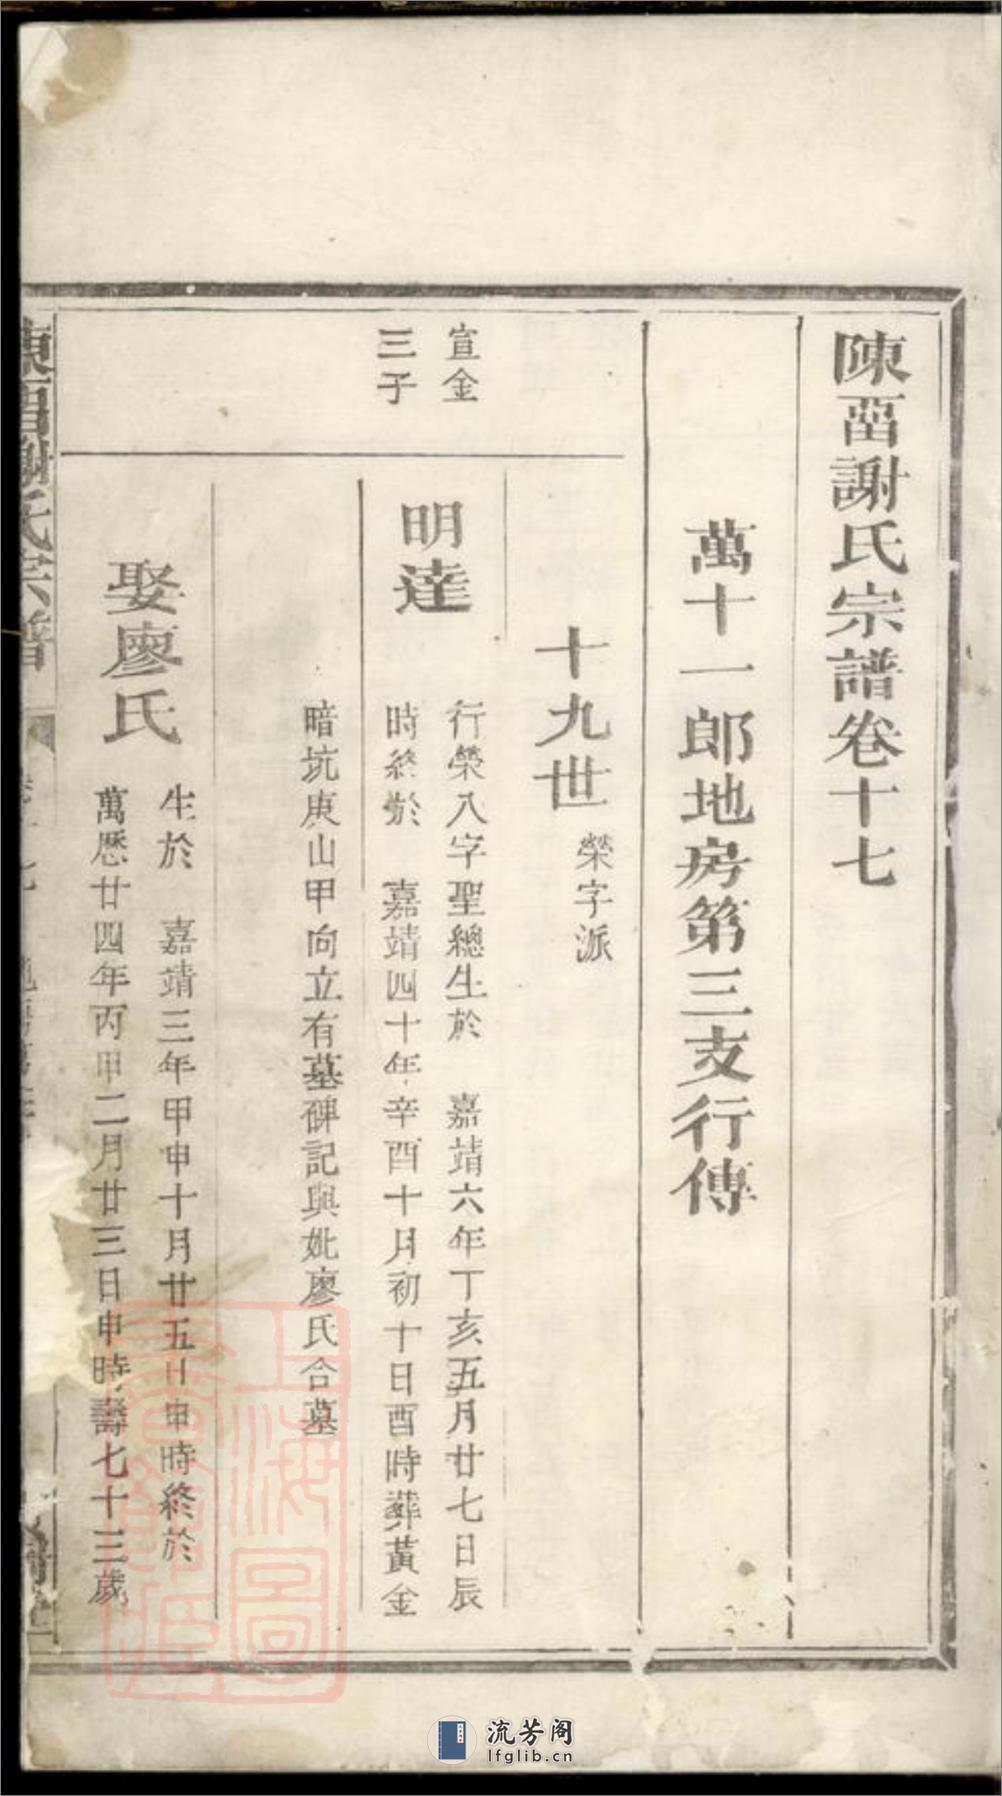 陳畱謝氏宗譜卷十七
萬十一郎地房第三支行傳
十九世 榮字派
宣金
三子
明達
行榮八字聖總生於 嘉靖六年丁亥五月廿七日辰
時終於 嘉靖四十年辛酉十月初十日酉時葬黃金
暗坑庚山甲向立有墓碑記與妣廖氏合墓
娶廖氏
生於 嘉靖三年甲申十月廿五日申時終於
萬曆廿四年丙申二月廿三日申時壽七十三歲
陳畱謝氏宗譜
上海圖
書館藏
流芳阁
lfglib.cn